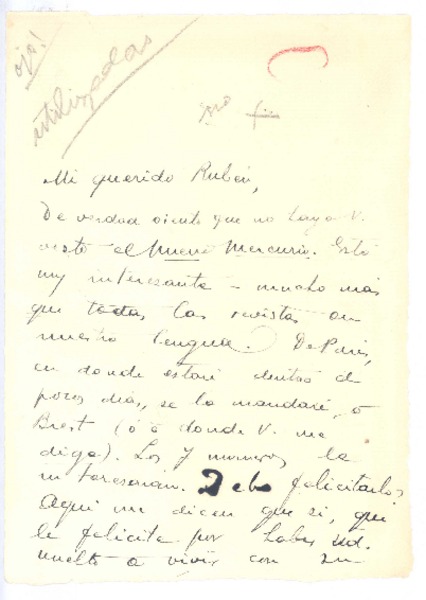 ojo!
utilizadas
no
Mi querido Rubén,
De verdad siento que no haya V.
visto el Nuevo Mercurio. Está
muy interesante - mucho más
que todas las revistas en
nuestra lengua. De Paris,
en donde estaré dentro de
pocos dias, se lo mandaré, a
Brest (ó a donde V. me
diga). Los 7 numeros le
interesarian. Debo felicitarlo?
Aqui me dicen que si, que
le felicita por haber Ud.
vuelto a vivir con su